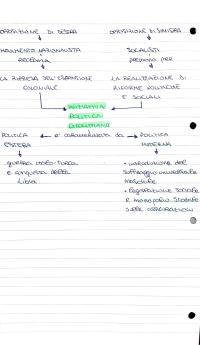 OPPOSIZIONE DI DESTRA
OPPOSIZIONE DI SINISTRA
MOVIMENTO NAZIONALISTA
SOCIALISTI
reclama
premono per
LA RIPRESA DELL'ESPANSIONE
COLONIALE
LA REALIZZAZIONE DI
RIFORME POLITICHE
E SOCIALI
INIZIATIVA
POLITICA
GIOLITTIANA
POLITICA
ESTERA
è caratterizzata da
POLITICA
INTERNA
guerra italo-turca
e conquista della
Libia
• introduzione del
suffragio universale
maschile
• legislazione sociale
e monopolio statale
sulle assicurazioni